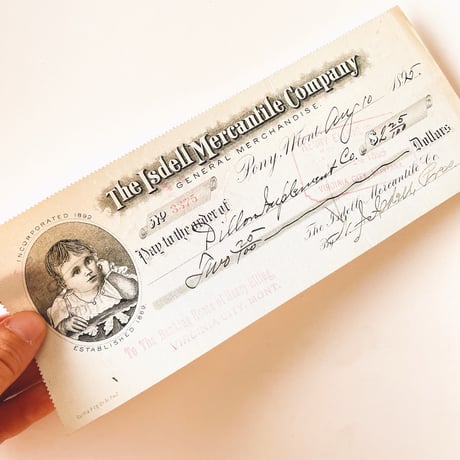 The Isdell Mercantile Company
GENERAL MERCHANDISE.
Pony, Mont. Aug 10 1895.
No 3375
$2 25/100
Pay to the order of Dillon Implement Co.
Two 25/100 Dollars
The Isdell Mercantile Co
By
To The Banking House of Henry Elling,
VIRGINIA CITY, MONT.
INCORPORATED 1892
ESTABLISHED 1869
VIRGINIA CITY